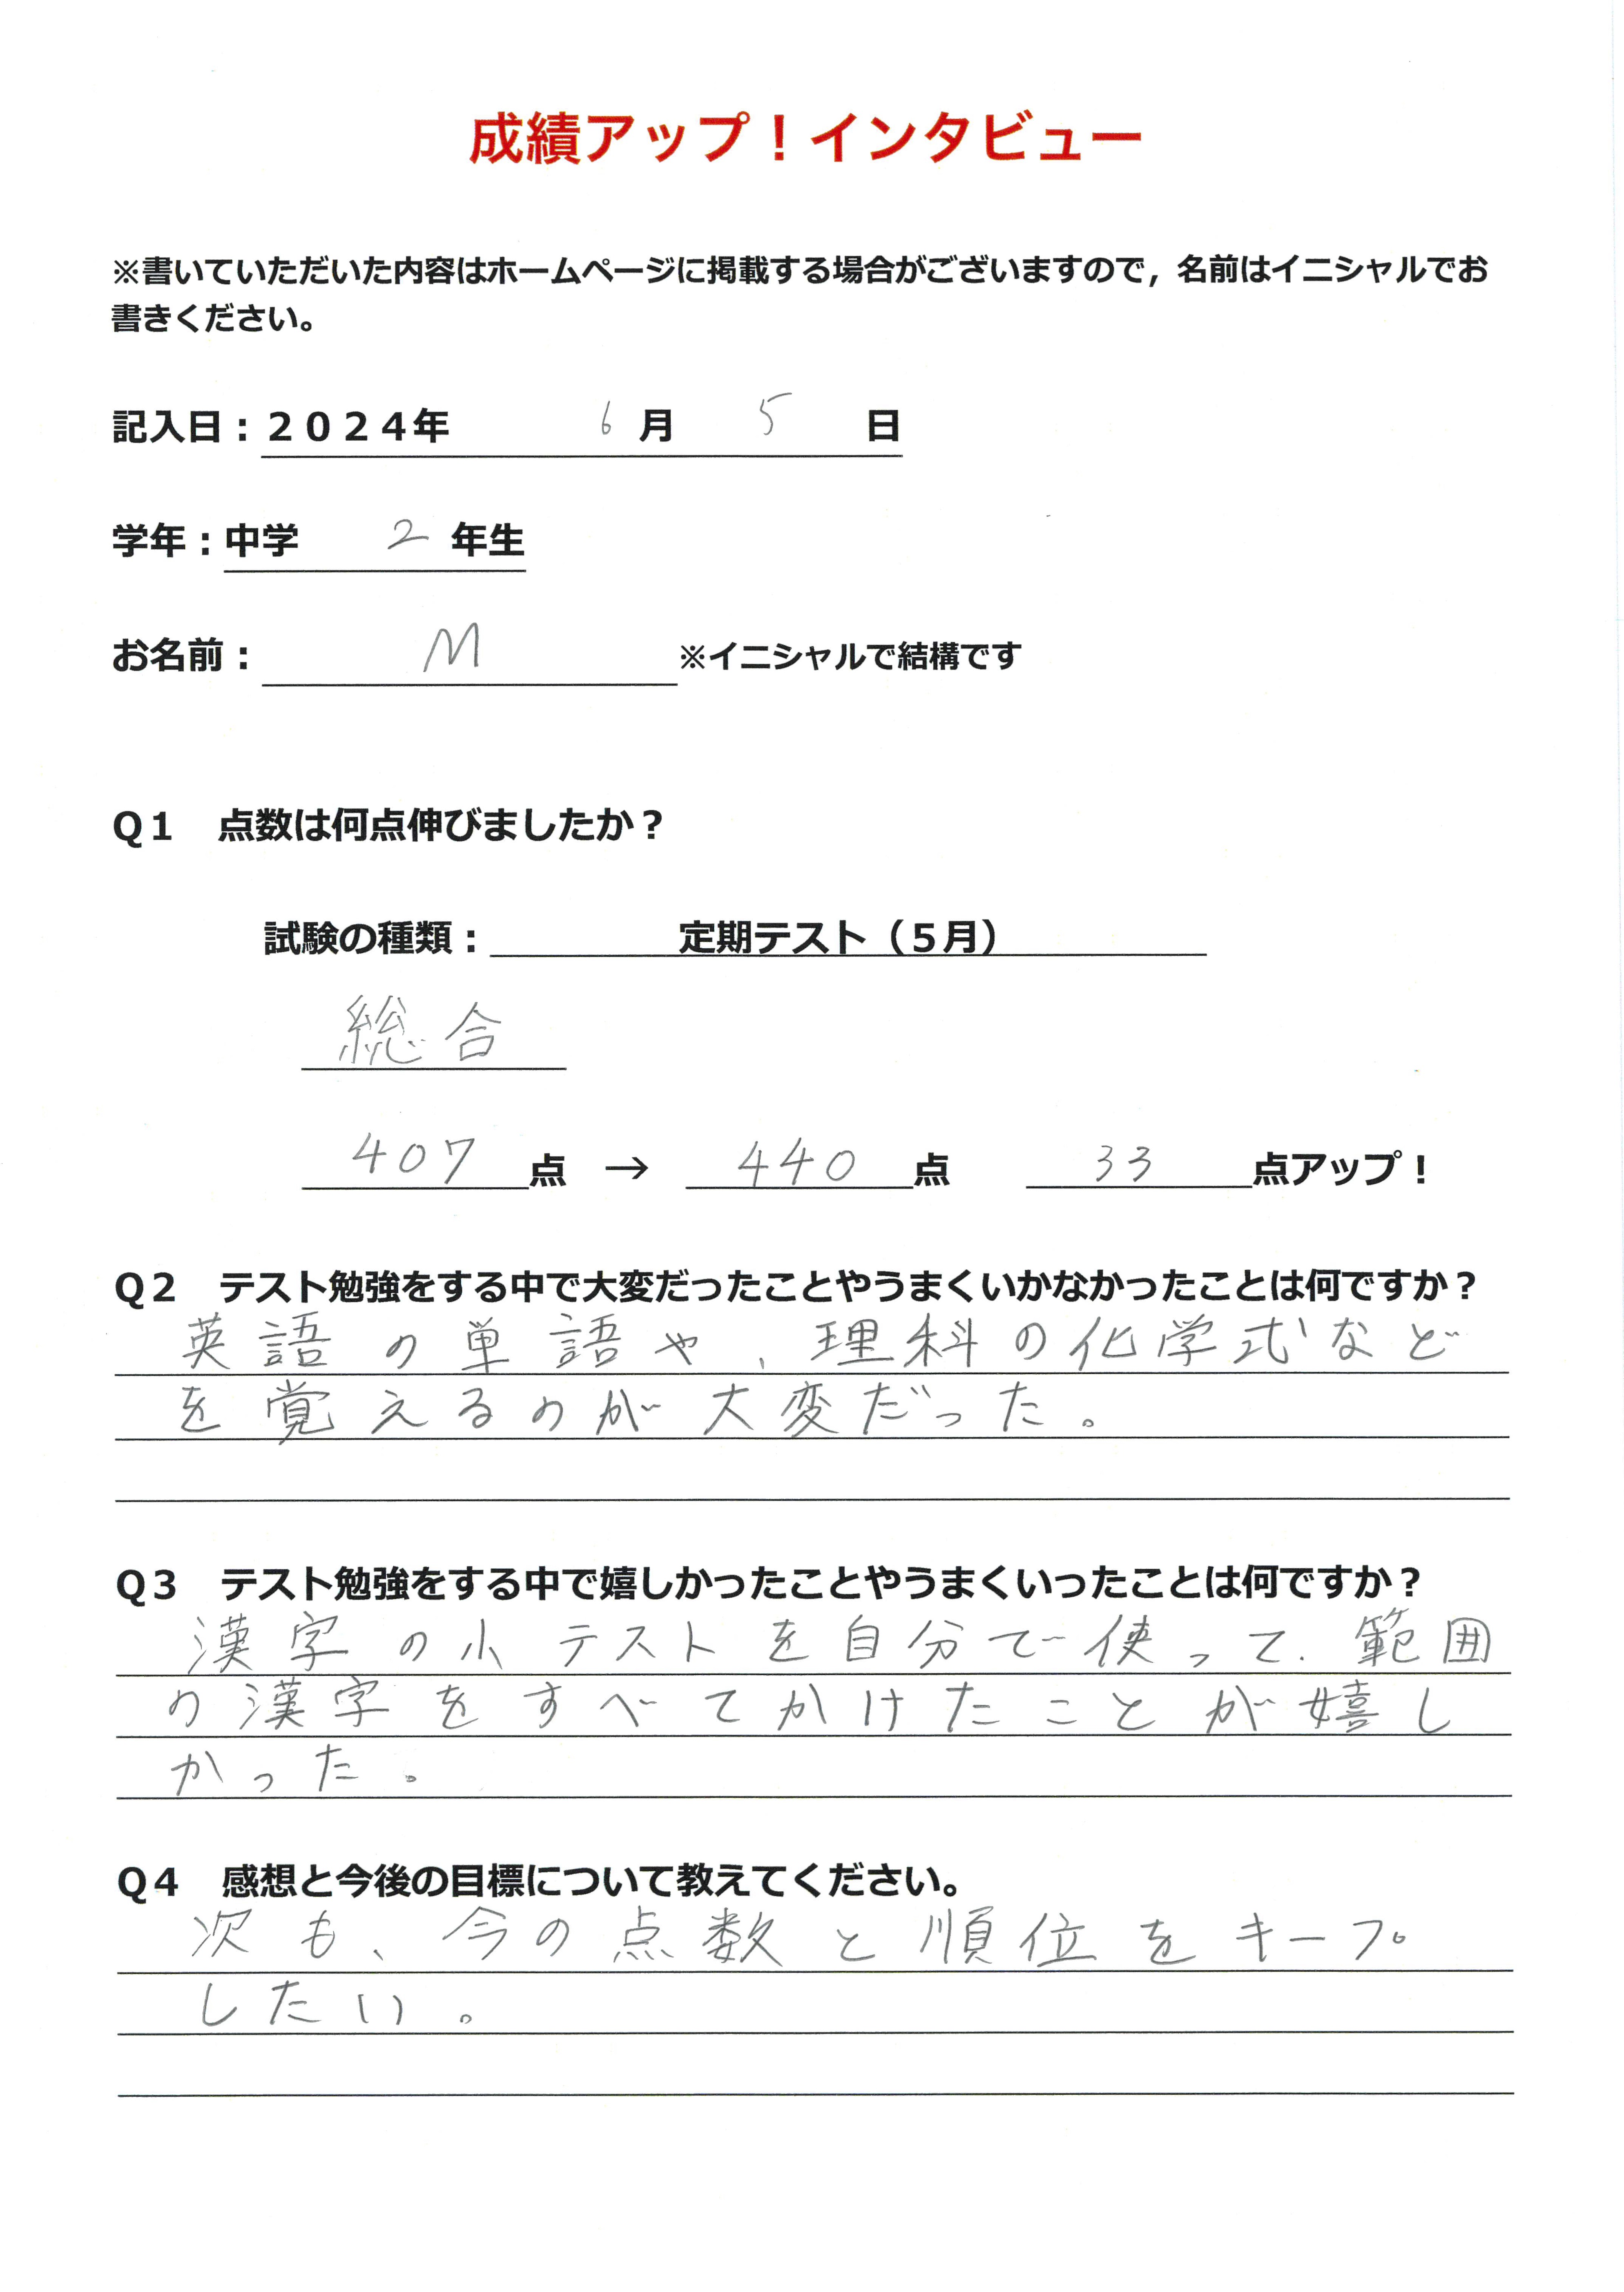 成績アップ！インタビュー
※書いていただいた内容はホームページに掲載する場合がございますので，名前はイニシャルでお
書きください。
記入日：２０２４年 6 月 5 日
学年：中学 2 年生
お名前： M ※イニシャルで結構です
Ｑ１　点数は何点伸びましたか？
試験の種類： 定期テスト（５月）
総合
407 点 → 440 点 33 点アップ！
Ｑ２　テスト勉強をする中で大変だったことやうまくいかなかったことは何ですか？
英語の単語や、理科の化学式など
を覚えるのが大変だった。
Ｑ３　テスト勉強をする中で嬉しかったことやうまくいったことは何ですか？
漢字の小テストを自分で使って、範囲
の漢字をすべてかけたことが嬉し
かった。
Ｑ４　感想と今後の目標について教えてください。
次も、今の点数と順位をキープ
したい。